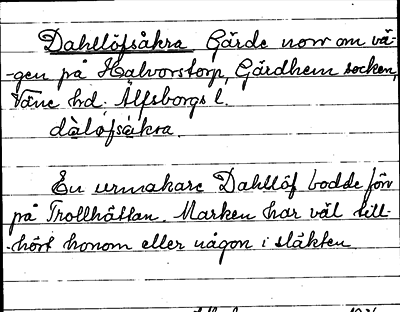 Dahllöfsåkra Gärde norr om vä-
-gen på Halvorstorp, Gärdhem socken,
Väne hd. Älfsborgs l.
dàlöfsåkra.
En urmakare Dahllöf bodde förr
på Trollhättan. Marken har väl till-
-hört honom eller någon i släkten